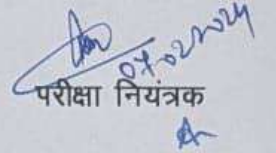 07.02.2024
परीक्षा नियंत्रक